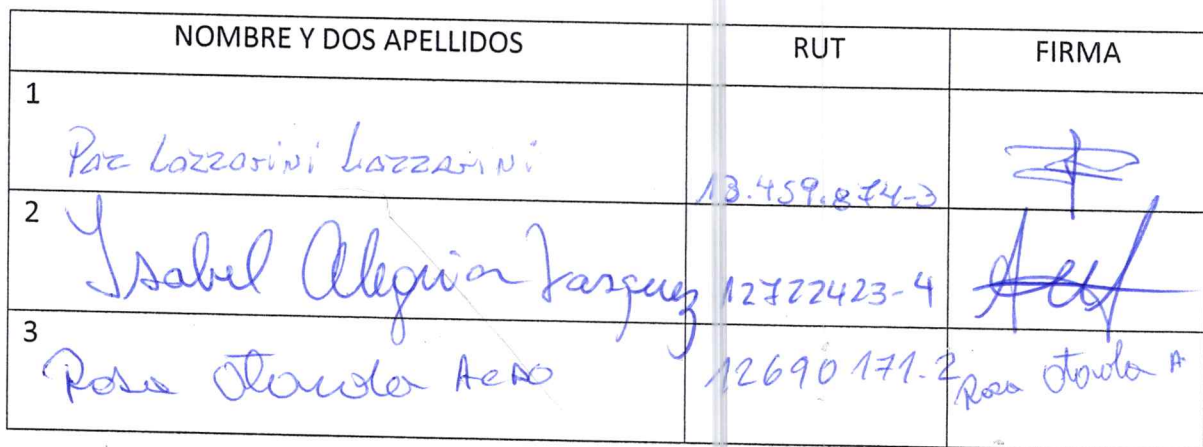 NOMBRE Y DOS APELLIDOS RUT FIRMA
1
Paz Lazzarini Lazzarini 13.459.874-3
2
Isabel Alegria Vasquez 12722423-4
3
Rosa Otarola 12690171.2 Rosa Otarola A